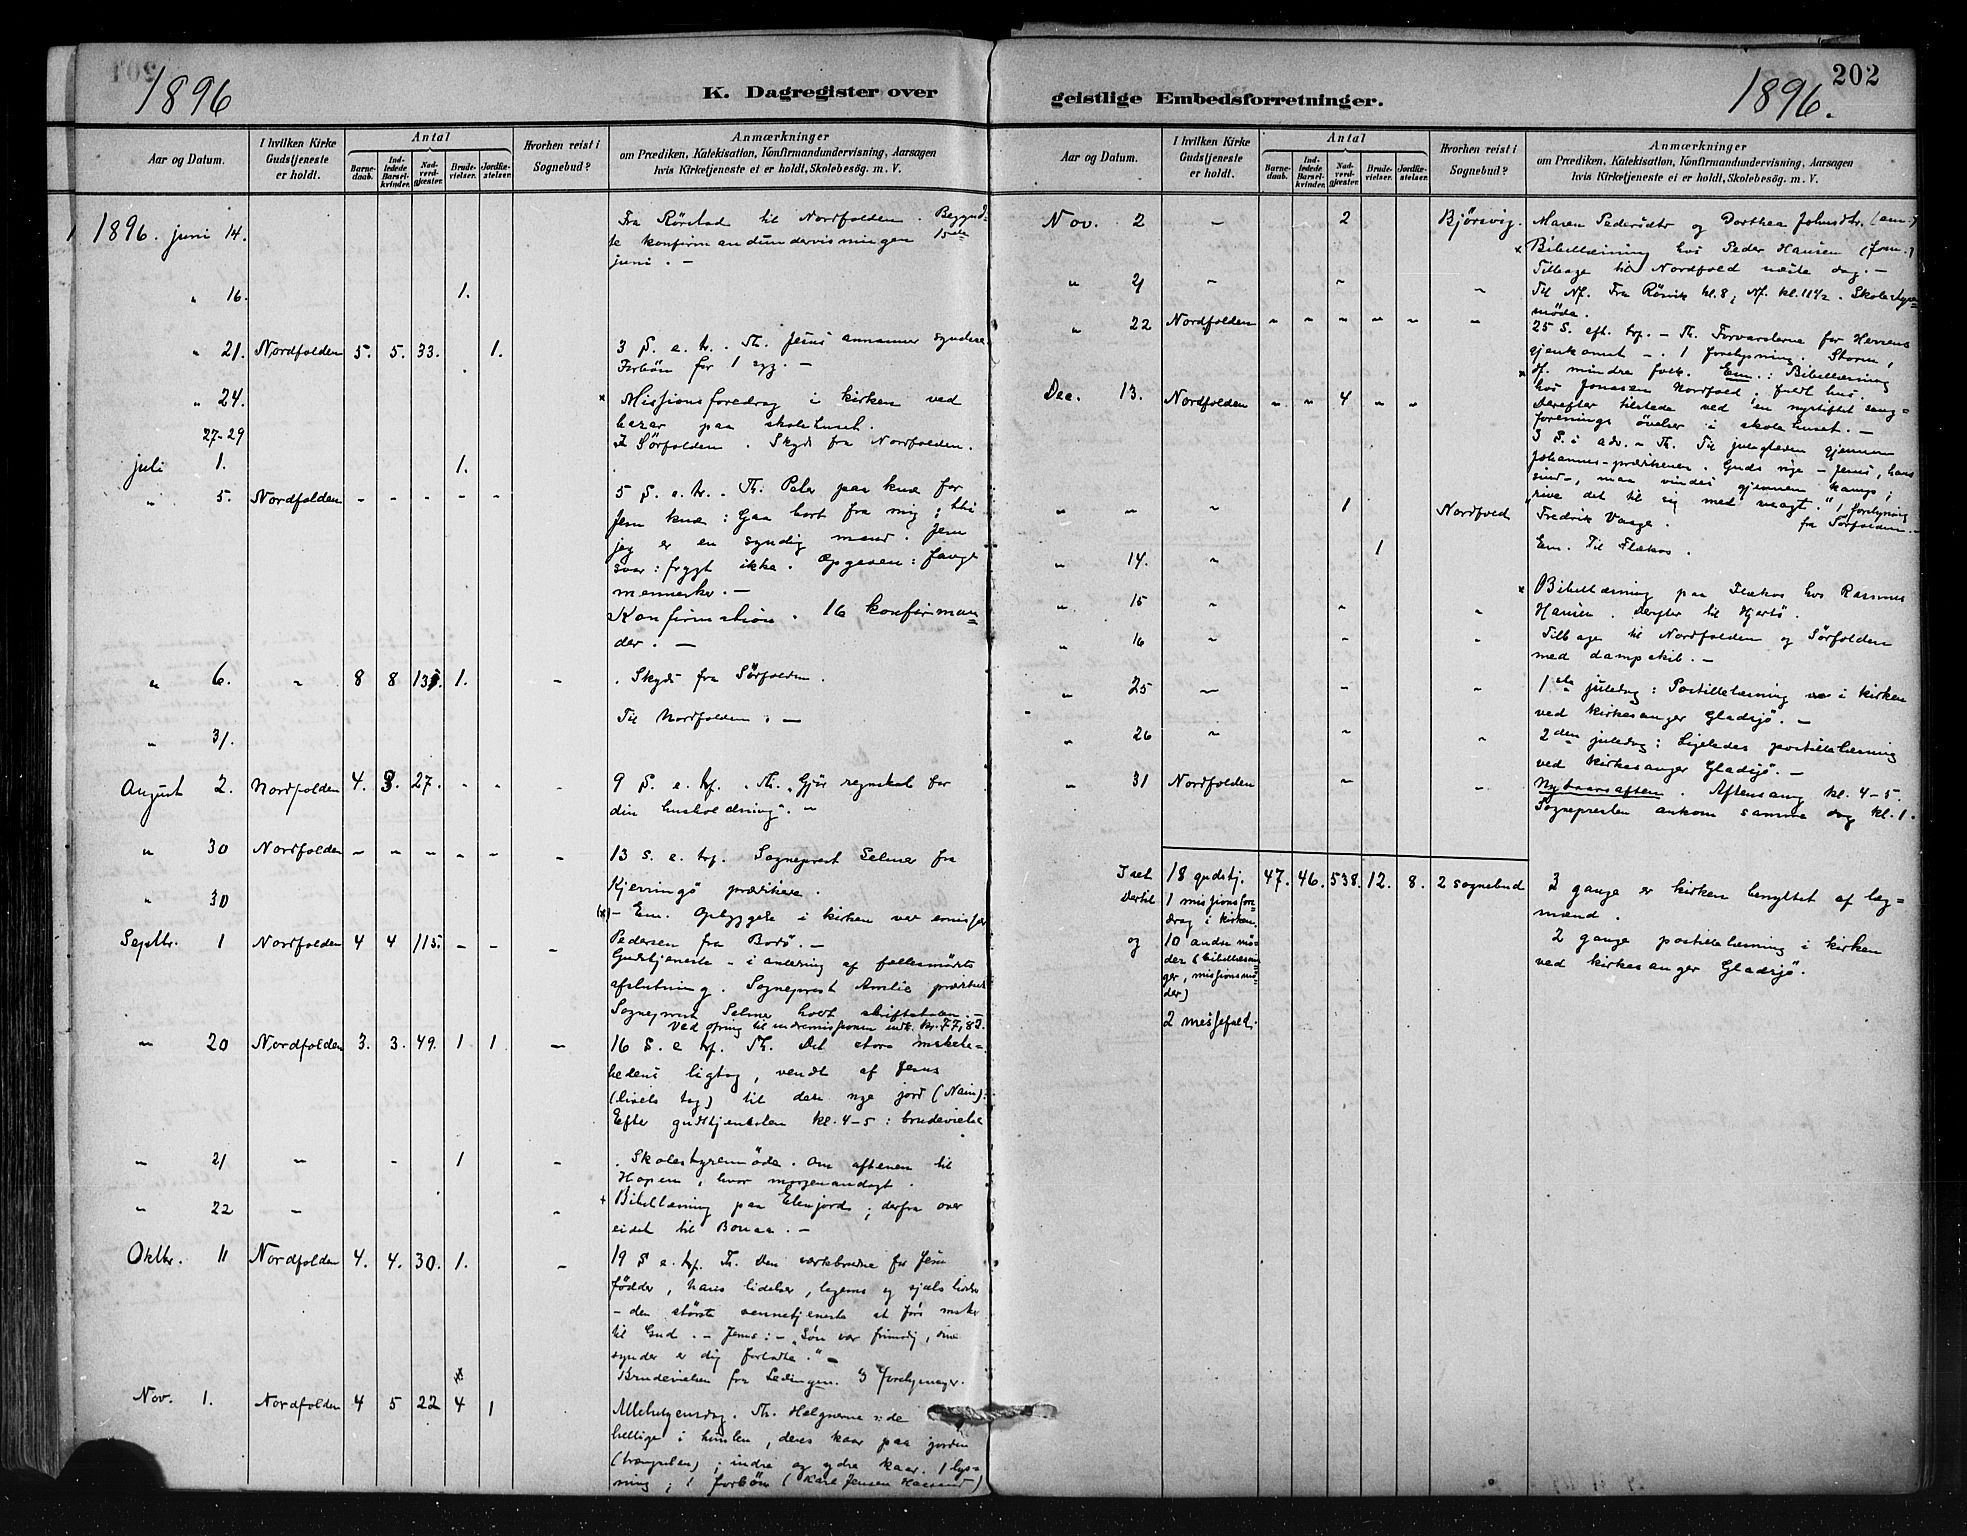 1896
K. Dagregister over
Aar og Datum.
I hvilken Kirke Gudstjeneste er holdt.
Antal
Barnedaab.
Indledede Barselkvinder.
Nadverdgjester
Brudevielser.
Jordfæstelser.
Hvorhen reist i Sognebud?
Anmærkninger
om Prædiken, Katekisation, Konfirmandundervisning, Aarsagen
hvis Kirketjeneste ei er holdt, Skolebesøg. m. V.
1896. juni 14. Fra Rørstad til Nordfolden. Begynd-
te konfirmandundervisningen 15de
juni. —
" 16. 1.
" 21. Nordfolden 5. 5. 33. 1. 3 S. e. tr. Th. Jesus annamer syndere
Forbøn for 1 syg. —
" 24. x Missionsforedrag i kirken ved
bazar paa skolehuset.
27-29 I Sørfolden. Skyds fra Nordfolden.
juli 1. 1.
" 5. Nordfolden - - - - - 5 S. e. tr. Th: Peter paa knæ for
Jesu knæ: Gaa bort fra mig; thi
jeg er en syndig mand. Jesu
svar: frygt ikke. Opgaven: fange
mennesker. —
Konfirmation. 16 konfirman-
der. —
" 6. " 8 8 131. 1. - Skyds fra Sørfolden.
" 31. Til Nordfolden. —
August 2. Nordfolden 4. 3. 27. - - - 9 S. e. trf. Th. "Gjør regnskab for
din husholdning". —
" 30 Nordfolden - - - - - - 13 S. e. trf. Sogneprest Selmer fra
Kjerringø prædikede.
" 30 (x) - Em. Opbyggelse i kirken var emissær
Pedersen fra Bodø. —
Septbr. 1 Nordfolden 4 4 115. - - - Gudstjeneste i anledning af fællesmødets
afslutning. Sogneprest Amlie prædiket
Sogneprest Selmer holdt skriftetalen. —
Ved ofring til indremissionen indk. kr. 77,82.
" 20 Nordfolden 3. 3. 49. 1 1 - 16 S. e trf. Th. Det store mskelig-
hedens ligtog, vendt af Jesus
(livets tog) til den nye jord (Nain).
Efter gudstjenesten kl. 4-5: brudevielse
" 21 " - 1 - Skolestyremøde. Om aftenen til
Hopen, hvor morgenandagt.
" 22 " - + Bibellæsning paa Elvfjords; derfra over
eidet til Bonaa. —
Oktbr. 11 Nordfolden 4. 4. 30. 1. - 19 S e. trf. Th. Den værkbrudne for Jesu
fødder, hans lidelser, legems og sjæls lidelser
- den største vennetjeneste at føre msker
til Gud. - Jesus: - "Søn vær frimodig, dine
synder er dig forladte." —
Brudevielsen fra Lødingen. 3 forlysninger.
Nov. 1. Nordfolden 4 5 22 4 1 Allehelgensdag. Th. Helgnerne o: de
hellige i himlen, deres kaar paa jorden
(trængslen); indre og ydre kaar. 1 lys-
ning; 1 forbøn (Karl Jensen

202
1896.
geistlige Embedsforretninger.
Aar og Datum.
I hvilken Kirke Gudstjeneste er holdt.
Antal
Barnedaab.
Indledede Barselkvinder.
Nadverdgjester.
Brudevielser.
Jordfæstelser.
Hvorhen reist i Sognebud?
Anmærkninger
om Prædiken, Katekisation, Konfirmandundervisning, Aarsagen
hvis Kirketjeneste ei er holdt, Skolebesøg. m. V.
Nov. 2 - 2 Bjørsvig. Maren Pedersdtr og Dorthea Johnsdtr.
x Bibellæsning hos Peder Hansen (form.)
Tilbage til Nordfold næste dag. —
" 21 - - - Til Nf. Fra Røsvik kl. 8; Nf. kl. 11 1/2. Skolestyre-
møde.
" 22 Nordfolden - - - - - - 25 S. eft. trf. - Th. Forvarslerne for Herrens
gjenkomst -. 1 forlysning. Storm,
df. mindre folk. Em.: Bibellæsning
hos Jonassen Nordfold; fuldt hus.
Derefter tilstede ved en nystiftet sang-
forenings øvelser i skolehuset. —
Dec. 13. Nordfolden - - 4 - - 3 S. i adv. - Th. Til juleglæden gjennem
Johannes-prædikenen. Guds rige - Jesus, hans
sind -, maa vindes gjennem kamp;
"rive det til sig med magt." 1 forlysning
fra Sørfolden. —
" " " 1 Nordfold Fredrik Vaage.
Em. Til Flækos.
" 14. " 1
" 15 " - " x Bibellæsning paa Flækos hos Rasmus
Hansen. Derefter til Hjertø.
" 16 " - " Tilbage til Nordfolden og Sørfolden
med dampskib. —
" 25 - - " 1ste juledag: Postillelæsning i kirken
ved kirkesanger Gladsjø. —
" 26 " - " 2den juledag: Ligeledes postillelæsning
ved kirkesanger Gladsjø. —
" 31 Nordfolden - " Nytaarsaften. Aftensang kl. 4-5.
Sognepresten ankom samme dag kl. 1.
I alt 18 gudstj. 47. 46. 538. 12. 8. 2 sognebud 2 gange er kirken benyttet af læg-
mænd.
Dertil 1 missionsfore-
drag i kirken.
og 10 andre mø-
der (bibellæsnin-
ger, missionsmø-
der)
2 messefald.
2 gange postillelæsning i kirken
ved kirkesanger Gladsjø.